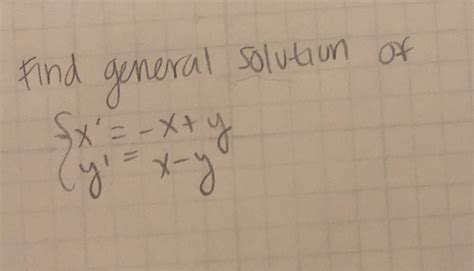 Find general solution of
{x' = -x+y
y' = x-y